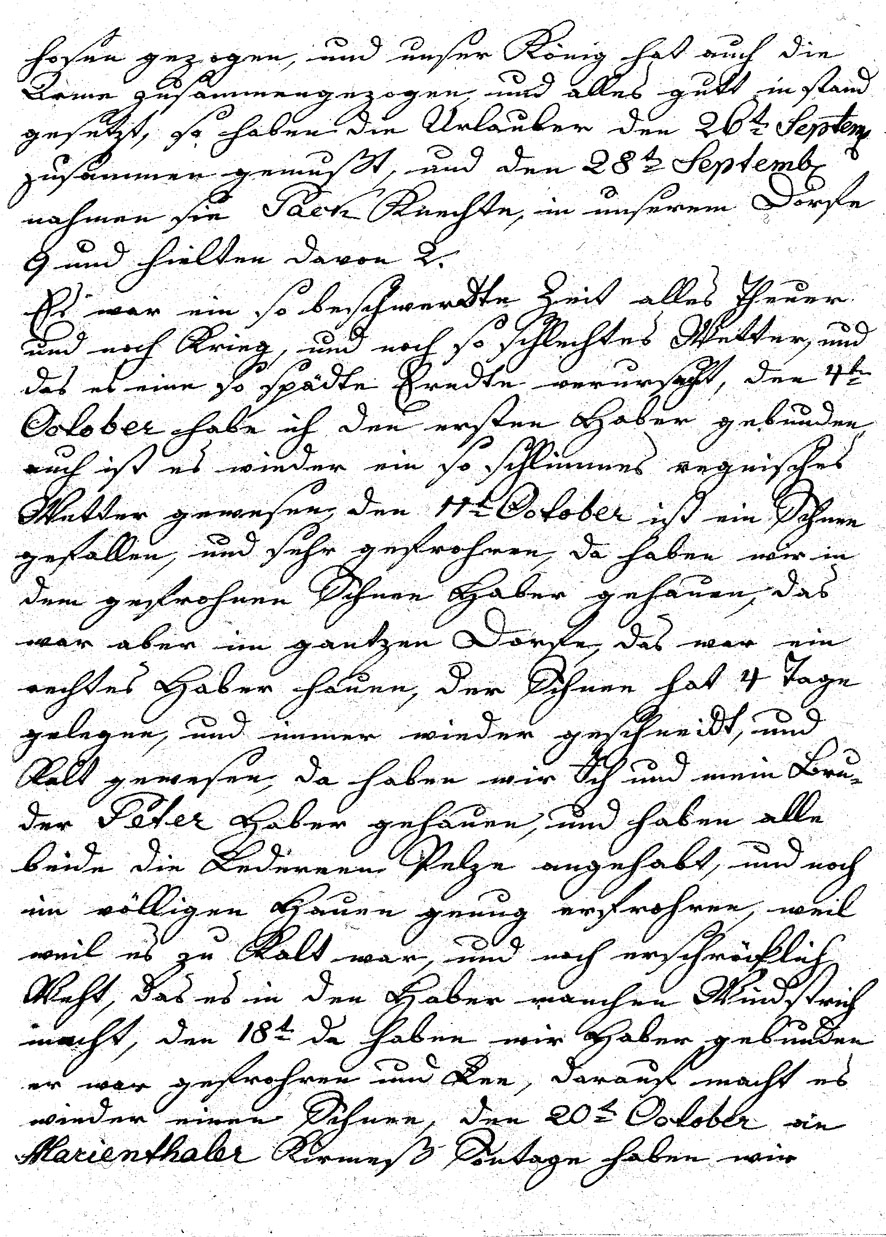 hosen gezogen, und unser König hat auch die
Arme zusammengezogen, und alles gutt in stand
gesetzt, so haben die Urlauber den 26t Septemb
zusammen gemußt, und den 28t Septemb
nahmen sie Pack Knechte, in unserem Dorfe
9 und hielten davon 2.
Es war ein so beschwerdte Zeit alles Theuer
und noch Krieg, und noch so schlechtes Wetter, und
das es eine so spädte Erndte verursacht, den 4t
October habe ich den ersten Haber gebunden,
auch ist es wieder ein so schlimmes regnisches
Wetter gewesen, den 11t October ist ein Schnee
gefallen, und sehr gefrohren, da haben wir in
dem gefrohnen Schnee Haber gehauen, das
war aber im gantzen Dorfe, das war ein
rechtes Haber hauen, der Schnee hat 4 Tage
gelegen, und immer wieder geschneidt, und
Kalt gewesen, da haben wir Ich und mein Bru-
der Peter Haber gehauen, und haben alle
beide die Ledernen Pelze angehabt, und noch
im völligen Hauen genug erfrohren, weil
weil es zu Kalt war, und noch erschröcklich
Weht, das es in den Haber manchen Windstrich
macht, den 18t da haben wir Haber gebunden
er war gefrohren und, darauf macht es
wieder einen Schnee, den 20t October ein
Marienthaler Kirmeß Sontage haben wir